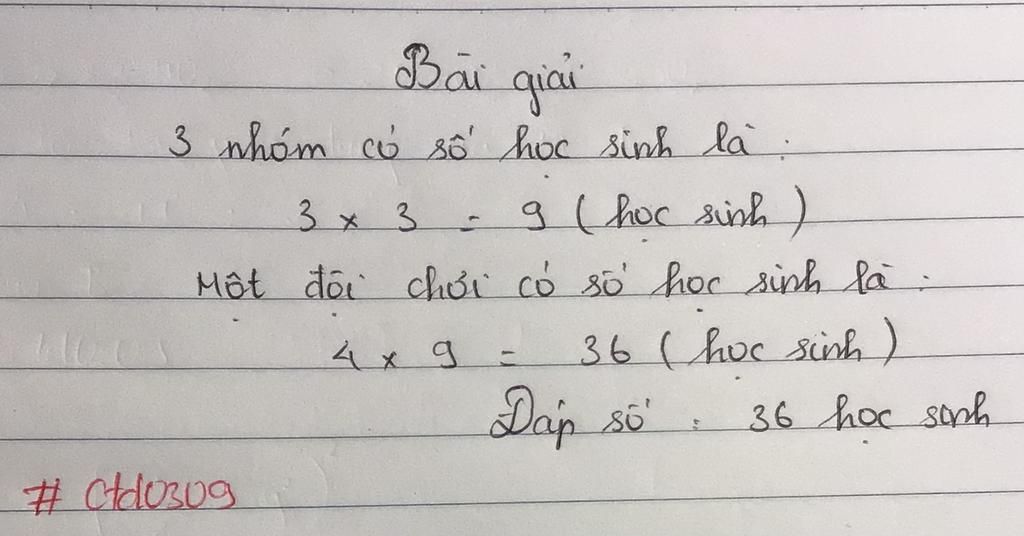 Bài giải
3 nhóm có số học sinh là:
3 x 3 = 9 (học sinh)
Một đội chơi có số học sinh là:
4 x 9 = 36 (học sinh)
Đáp số: 36 học sinh
# Ctd0309